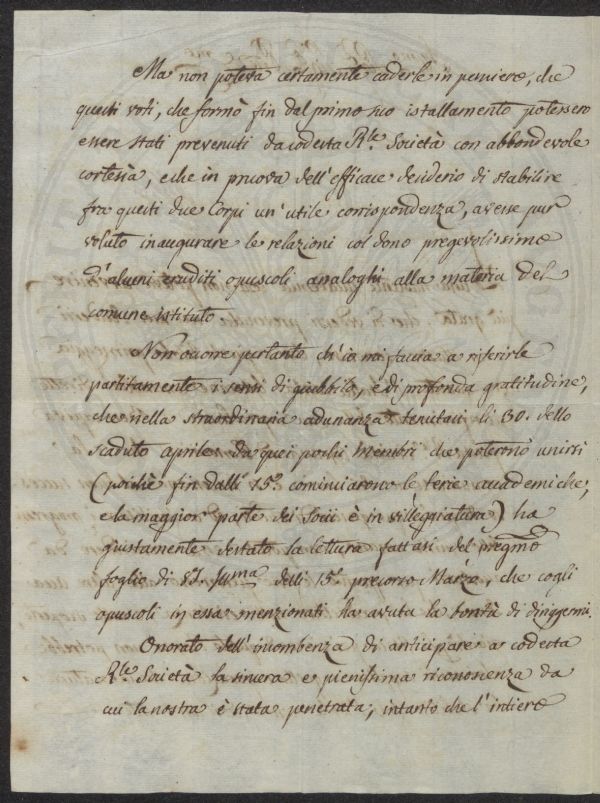 Ma non poteva certamente caderle in pensiere, che
questi voti, che formò fin dal primo suo istallamento potessero
essere stati prevenuti da codesta Rle. Società con abbondevole
cortesia, e che in pruova dell'efficace desiderio di stabilire
fra questi due Corpi un'utile corrispondenza, avesse pur
voluto inaugurare le relazioni col dono pregevolissimo
d'alcuni eruditi opuscoli analoghi alla materia del
comune istituto.
Non occorre pertanto ch'io mi faccia a riferirle
partitamente i sensi di giubbilo, e di profonda gratitudine,
che nella straordinaria adunanza tenutasi li 30. dello
scaduto aprile da quei pochi membri che poterono unirsi
(poichè fin dalli 15. cominciarono le ferie accademiche,
e la maggior parte dei Socii è in villeggiatura) ha
giustamente destato la lettura fattasi del pregmo
foglio di V.S. Illma delli 15. precorso Marzo, che cogli
opuscoli in essa menzionati ha avuta la bontà di dirigermi.
Onorato dell'incombenza di anticipare a codesta
Rle. Società la sincera e pienissima riconoscenza da
cui la nostra è stata penetrata; intanto che l'intiero